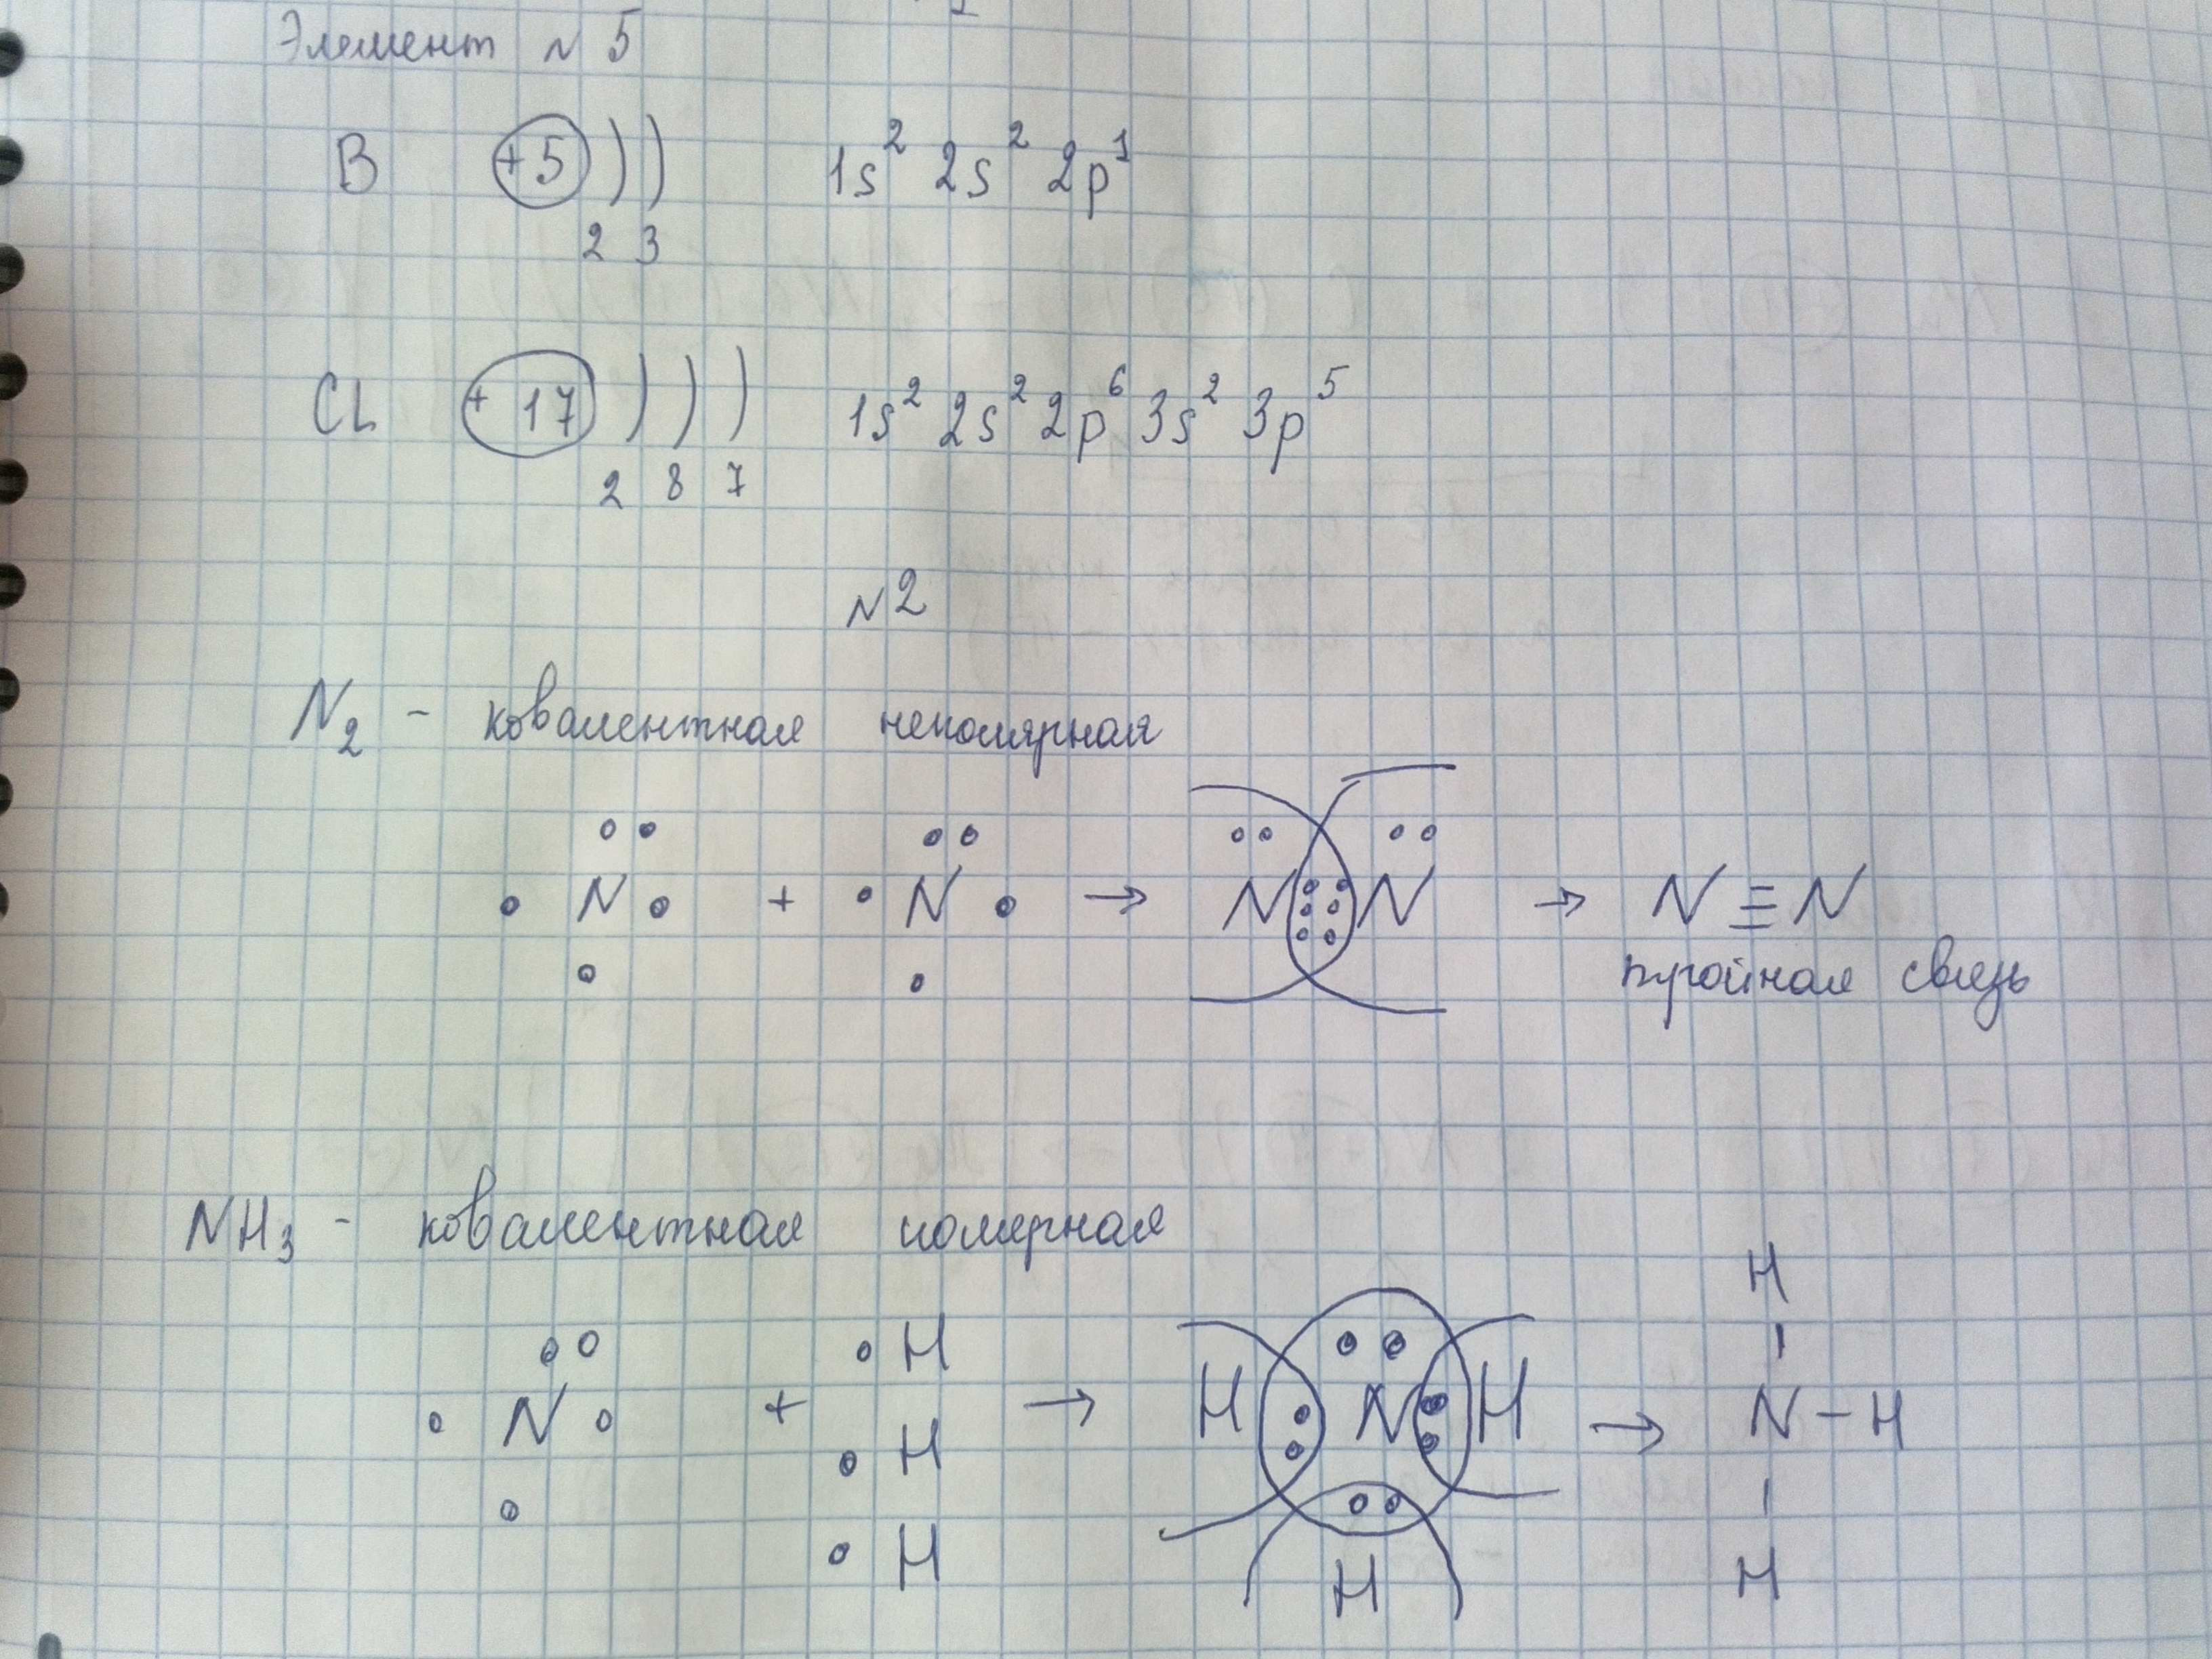 Элемент N 5
B +5 ) ) 1s² 2s² 2p¹
2 3
CL +17 ) ) ) 1s² 2s² 2p⁶ 3s² 3p⁵
2 8 7
N2
N₂ - ковалентная неполярная
N + N → N N → N≡N
тройная связь
NH₃ - ковалентная полярная
H
H
N + H → H N H → N - H
H
H H